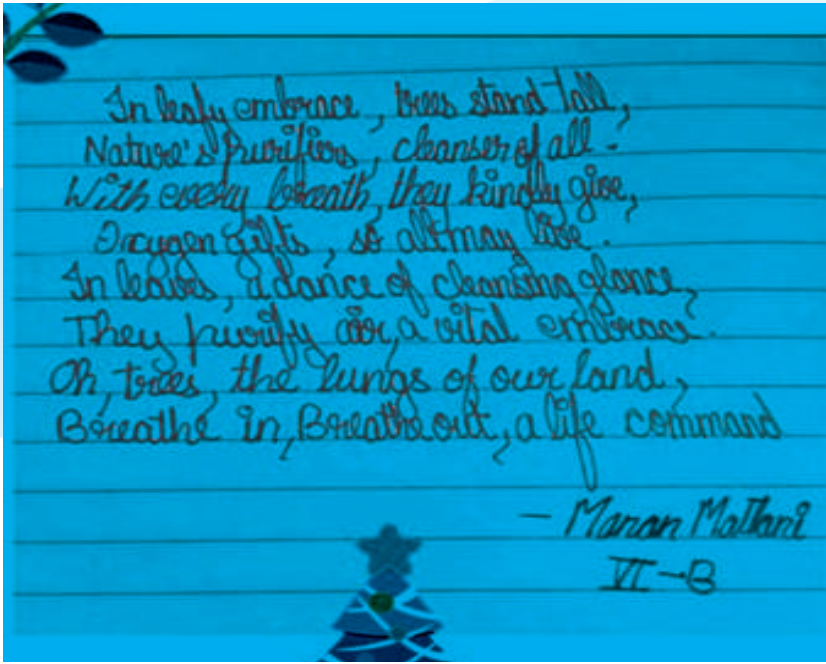 In leafy embrace, trees stand tall,
Nature's purifiers, cleanser of all.
With every breath, they kindly give,
Oxygen gifts, so all may live.
In leaves, a dance of cleansing glance,
They purify air, a vital embrace.
Oh, trees, the lungs of our land,
Breathe in, Breathe out, a life command
- Manan
VI-B